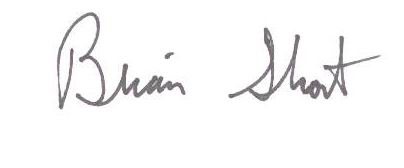 Brian Short